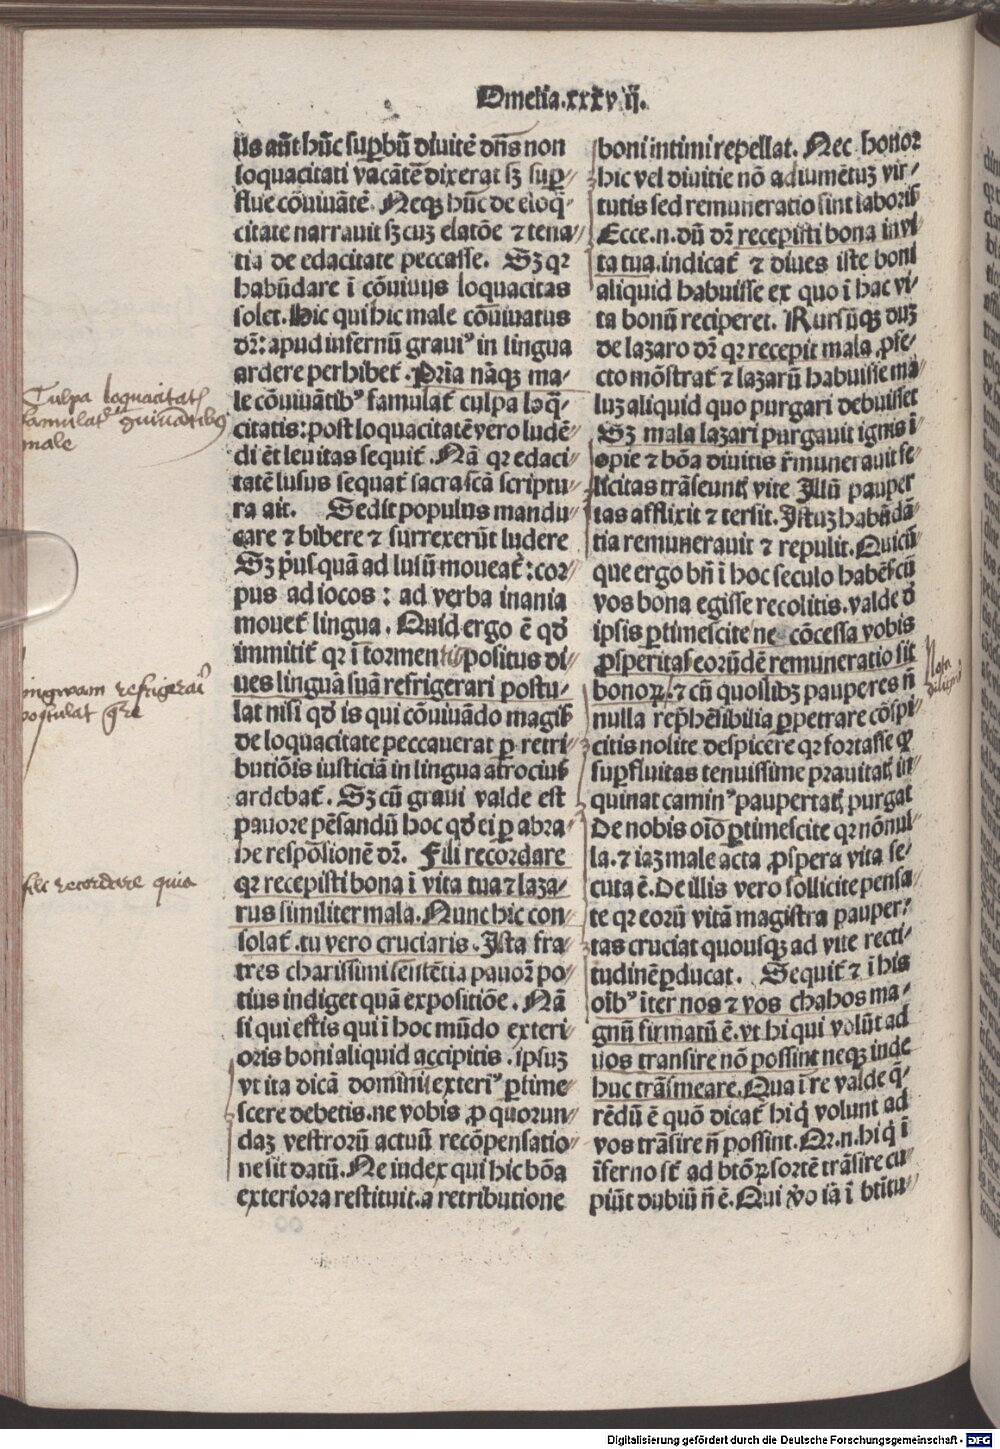 Omelia.xxxvij.
us aūt hūc suꝑbū diuitē dn̄s non
loquacitati vacātē dixerat sꝫ suꝑ-
flue cōuiuātē. Neqꝫ hūc de eloq̄-
citate narrauit sꝫ cuꝫ elatōe ⁊ tena-
tia de edacitate peccasse. Sꝫ qꝛ
habūdare ī cōuiuijs loquacitas
solet. Hic qui hic male cōuiuatus
dꝛ̄: apud infernū grauiꝰ in lingua
ardere perhibet᷑. Pria nāqꝫ ma-
le cōuiuātibꝰ famulat᷑ culpa loq̄-
citatis: post loquacitatē vero ludē-
di ēt leuitas sequit᷑. Nā qꝛ edaci-
tatē lusus sequat᷑ sacra scā scriptu-
ra ait. Sedit populus mandu-
care ⁊ bibere ⁊ surrexerūt ludere
Sꝫ pꝰusquā ad lusū moueat᷑: cor-
pus ad iocos: ad verba inania
mouet᷑ lingua. Quid ergo ē qd̓
immitit᷑ qꝛ ī tormentis positus di-
ues linguā suā refrigerari postu-
lat nisi qd̓ is qui cōuiuādo magis
de loquacitate peccauerat ꝑ retri-
butiōis iusticiā in lingua atrocius
ardebat᷑. Sꝫ cū graui valde est
pauore pēsandū hoc qd̓ ei ꝑ abra-
he respōsionē dꝛ̄. Fili recordare
qꝛ recepisti bona ī vita tua ⁊ laza-
rus similiter mala. Nunc hic con-
solat᷑. tu vero cruciaris. Ista fra-
tres charissimi sentētia pauoꝛe po-
tius indiget quā expositiōe. Nā
si qui estis qui ī hoc mūdo exteri-
oris boni aliquid accipitis. ipsuꝫ
vt ita dicā dominij exteriꝰ ꝑtime-
scere debetis. ne vobis ꝓ quorun-
daꝫ vestrorū actuū recōpensatio-
ne sit datū. Ne iudex qui hic bōa
exteriora restituit. a retributione
boni intimi repellat. Nec honoꝛ
hic vel diuitie nō adiumētuꝫ vir-
tutis sed remuneratio sint laboris
Ecce.n. dū dꝛ̄ recepisti bona in vi
ta tua. indicat᷑ ⁊ diues iste boni
aliquid habuisse ex quo ī hac vi-
ta bonū reciperet. Rursūqꝫ duꝫ
de lazaro dꝛ̄ qꝛ recepit mala ꝓfe-
cto mōstrat᷑ ⁊ lazarū habuisse ma-
luꝫ aliquid quo purgari debuisset
Sꝫ mala lazari purgauit ignis ī-
opie ⁊ bōa diuitis r̄munerauit fe-
licitas trāseuntꝭ vite Illū pauper
tas afflixit ⁊ tersit. Istuꝫ habūdā-
tia remunerauit ⁊ repulit. Quicū-
que ergo bn̄ ī hoc seculo habēs cū
vos bona egisse recolitis. valde d̓
ipsis ꝑtimescite ne cōcessa vobis
ꝓsperitas eorūdē remuneratio sit
bonoꝝ. ⁊ cū quoslibꝫ pauperes n̄
nulla rep̄hēsibilia ꝑpetrare cōspi-
citis nolite despicere qꝛ fortasse qd̓
suꝑfluitas tenuissime prauitatꝭ in-
quinat caminꝰ paupertatꝭ purgat
De nobis oīo ꝑtimescite qꝛ nōnul-
la. ⁊ iaꝫ male acta ꝓspera vita se-
cuta ē. De illis vero sollicite pensa-
te qꝛ eorū vitā magistra pauper-
tas cruciat quousqꝫ ad vite recti-
tudinē ꝑducat. Sequit᷑ ⁊ ī his
oībꝰ iter nos ⁊ vos chahos ma-
gnū firmatū ē. vt hi qui volūt ad
vos transire nō possint neqꝫ inde
huc trāsmeare. Qua ī re valde q̄-
rēdū ē quō dicat᷑ hi q̇ volunt ad
vos trāsire n̄ possint. Qꝛ.n. hi q̇ ī
īferno sūt ad btōꝝ sortē trāsire cu-
piūt dubiū n̄ ē. Qui v̓o iā ī btītu-
Culpa loquacitatꝭ
famulat᷑ ɔuiuātibꝰ
male
linguam refrigerari
postulat
fili recordare quia
Nota
diligēt᷑
Digitalisierung gefördert durch die Deutsche Forschungsgemeinschaft - DFG